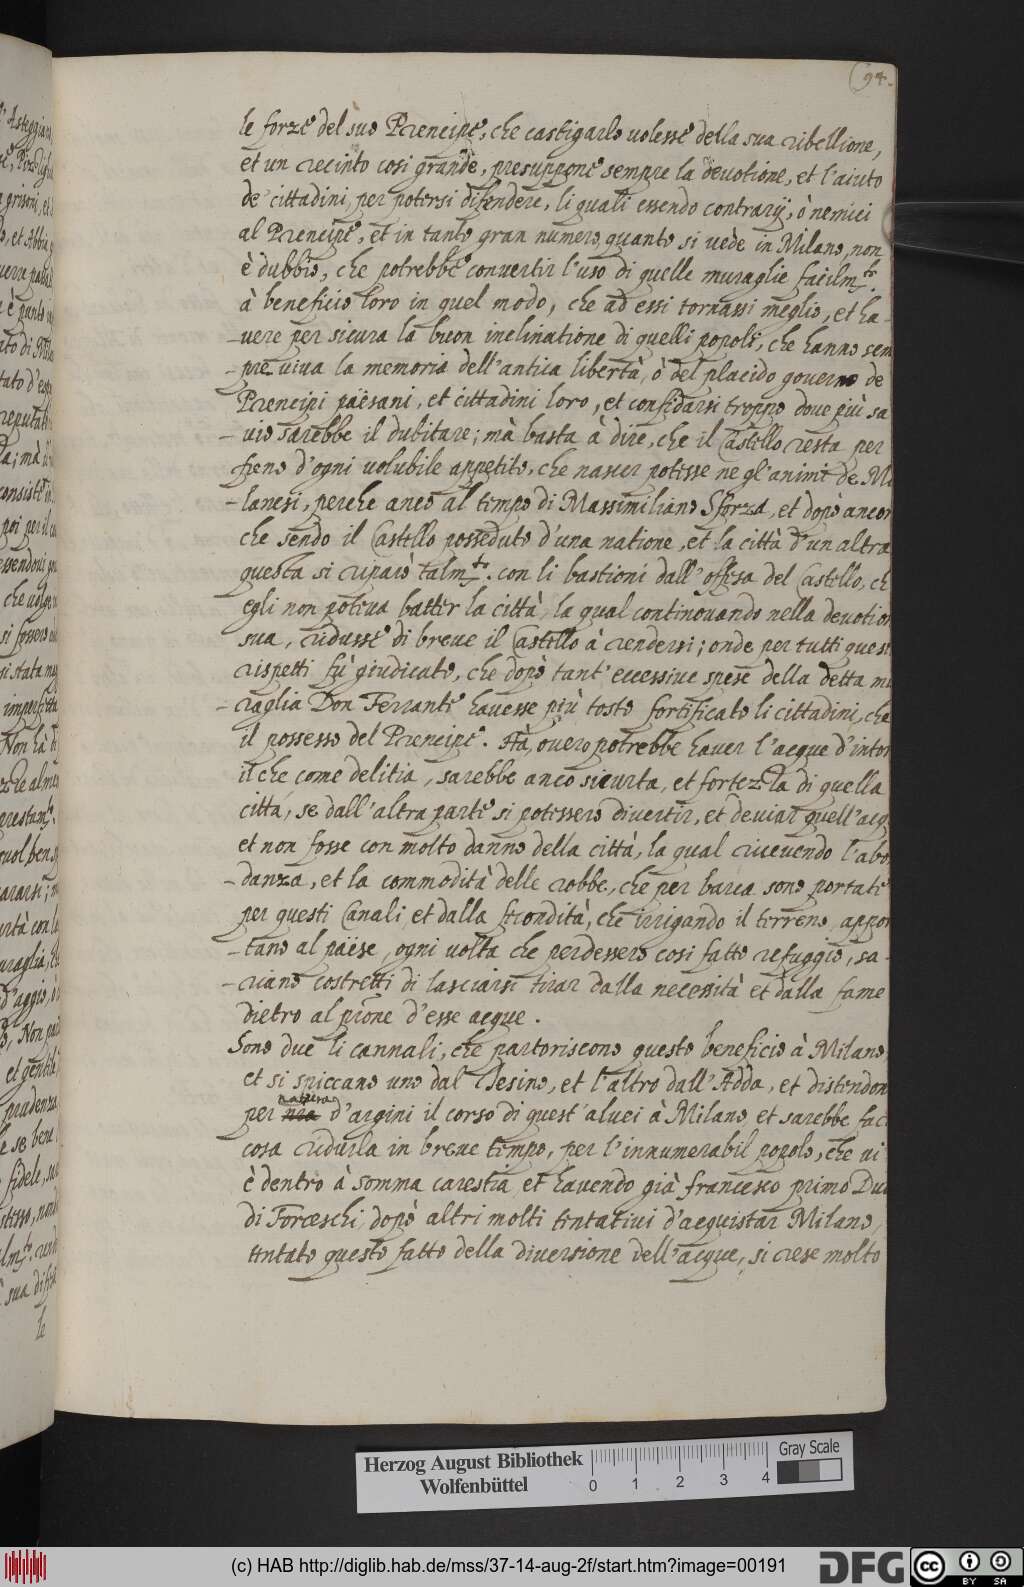 94.
le forze del suo Prencipe, che castigarlo volesse della sua ribellione,
et un recinto cosi grande, presuppone sempre la devotione, et l'aiuto
de' cittadini, per potersi difendere, li quali essendo contrarij, ò nemici
al Prencipe, et in tanto gran numero, quanto si vede in Milano, non
è dubbio, che potrebbe convertir l'uso di quelle muraglie facilm.te
à beneficio loro in quel modo, che ad essi tornassi meglio, et ha-
-vere per sicura la buon inclinatione di quelli popoli, che hanno sem
-pre viva la memoria dell'antica libertà, ò del placido governo de
Prencipi païsani, et cittadini loro, et confidarsi troppo dove più sa
-vio sarebbe il dubitare; mà basta à dire, che il Castello resta per
freno d'ogni volubile appetito, che nascer potesse ne gl'animi de Mi
-lanesi, perche anco al tempo di Massimiliano Sforza, et dopò ancor
che sendo il Castello posseduto d'una natione, et la città d'un altra
questa si riparò talm.te con li bastioni dall'offesa del Castello, ch
egli non poteva batter la città, la qual continovando nella devotion
sua, ridusse di breve il Castello à rendersi; onde per tutti quest
rispetti fù giudicato, che dopò tant'eccessive spese della detta mu
-raglia Don Ferrante havesse più tosto fortificato li cittadini, che
il possesso del Prencipe. Hà, overo potrebbe haver l'acque d'intor
il che come delitia, sarebbe anco sicurta, et fortezza di quella
città, se dall'altra parte si potessero divertir, et deviar quell'acq
et non fosse con molto danno della città, la qual ricevendo l'abo
-danza, et la commodità delle robbe, che per barca sono portate
per questi Canali, et dalla fecondità, che irrigando il terreno, appor
-tano al païse, ogni volta che perdessero cosi fatto refuggio, sa-
-riano costretti di lasciarsi tirar dalla necessità et dalla fame
dietro al pröne d'esse acque.
Sono due li cannali, che partoriscono questo beneficio à Milano,
et si spiccano uno dal Tesino, et l'altro dall'Adda, et distendon
natura
per nra d'argini il corso di quest'alvei à Milano, et sarebbe faci
cosa ridurla in breve tempo, per l'innumerabil popolo, che vi
è dentro à somma carestia, et havendo già francesco primo Duc
di Forceschi, dopò altri molti tentativi d'acquistar Milano,
tentato questo fatto della diversione dell'acque, si rese molto
le
Herzog August Bibliothek
Wolfenbüttel
0 1 2 3 4
Gray Scale
(c) HAB http://diglib.hab.de/mss/37-14-aug-2f/start.htm?image=00191
DFG
cc BY SA